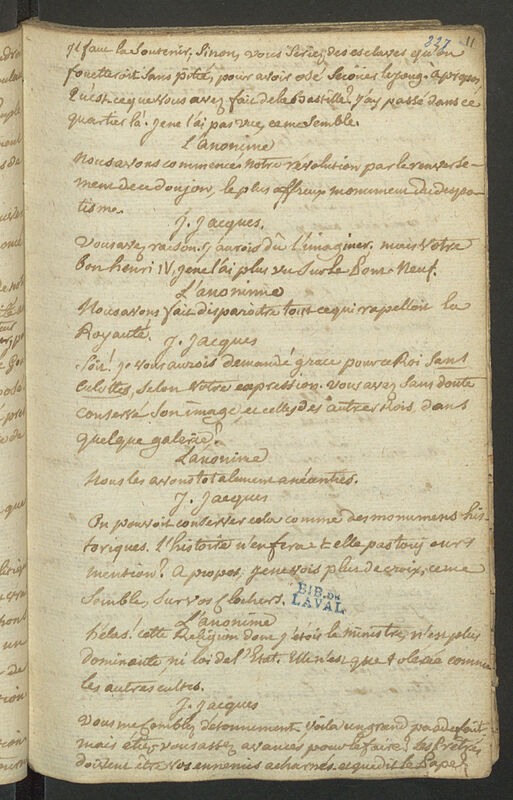 237 11
Il faut la soutenir, sinon, vous seriez des esclaves qu'on
foueteroit sans pitié, pour avoir osé secouer le joug. à propos,
Qu'est ce que vous avez fait de la bastille? j'ay passé dans ce
quartier là. je ne l'ai pas vue, ce me semble.
L'anonime
Nous avons commencé notre révolution par le renverse-
ment de ce donjon, le plus affreux monument du despo-
tisme.
J. Jacques.
Vous avez raison. j'aurois dû l'imaginer. mais votre
bon henri IV, je ne l'ai plus vu sur le Pont-Neuf.
L'anonime
Nous avons fait disparoitre tout ce qui rapelloit la
Royauté.
J. Jacques
Soit! je vous aurois demandé grace pour ce Roi sans
culottes, selon votre expression. vous avez sans doute
conservé son image et celles des autres Rois, dans
quelque galerie?
L'anonime
Nous les avons totalement anéanties.
J. Jacques
On pouvoit conserver cela comme des monumens his-
toriques. l'histoire n'en fera t elle pas toujours
mention? à propos, je ne vois plus de croix, ce me
semble, sur vos clochers.
BIB. DE
LAVAL
L'anonime
hélas! cette Religion dont j'étois le ministre, n'est plus
dominante, ni loi de l'Etat. Elle n'est que tolerée comme
les autres cultes.
J. Jacques
Vous me comblez d'étonnement. voila un grand pas de fait
mais étiez vous assez avancés pour le faire? Les Prêtres
doivent être vos ennemis acharnés. et que dit le Pape?